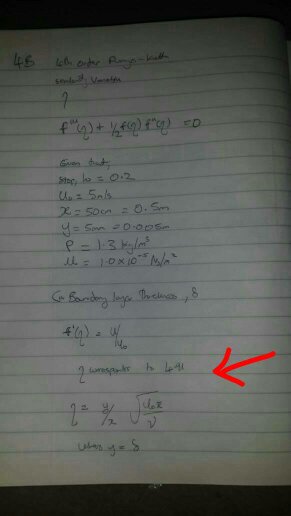 4B
4th order Runge-Kutta
η
f'''(η) + 1/2 f(η) f''(η) = 0
Given that,
step, h = 0.2
U₀ = 5m/s
x = 50cm = 0.5m
y = 5mm = 0.005m
ρ = 1.3 kg/m³
μ = 1.0x10⁻⁵ Ns/m²
Boundary layer Thickness, δ
f'(η) = u/U₀
η corresponds to 4.91
η = y/x √(U₀x/ν)
when y = δ